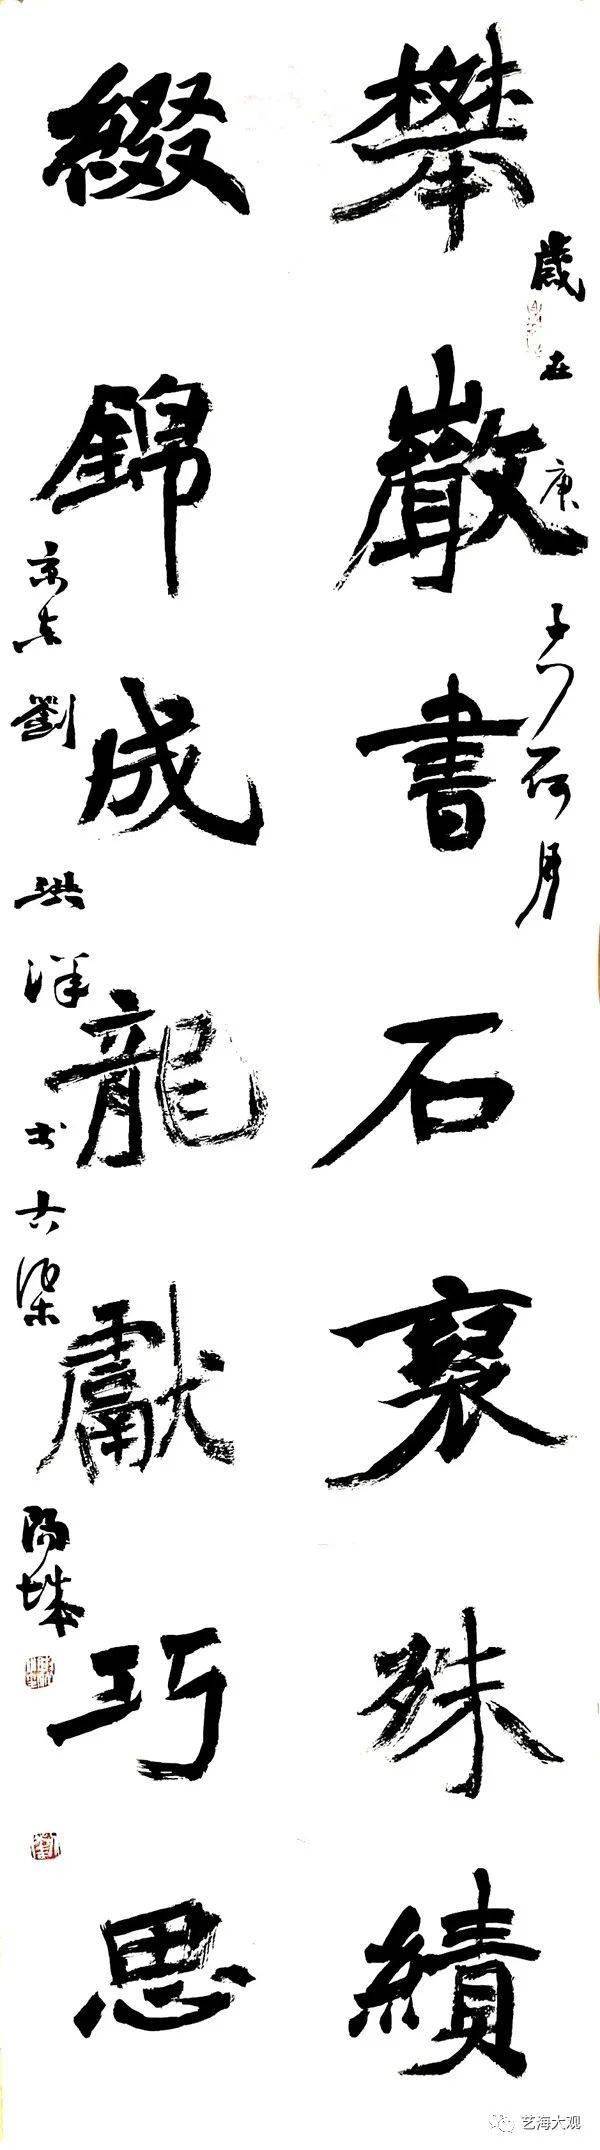 歲在庚子荷月
攀巖書石褒殊績
綴錦成龍獻巧思
京东劉洪洋书古渠陽城
艺海大观